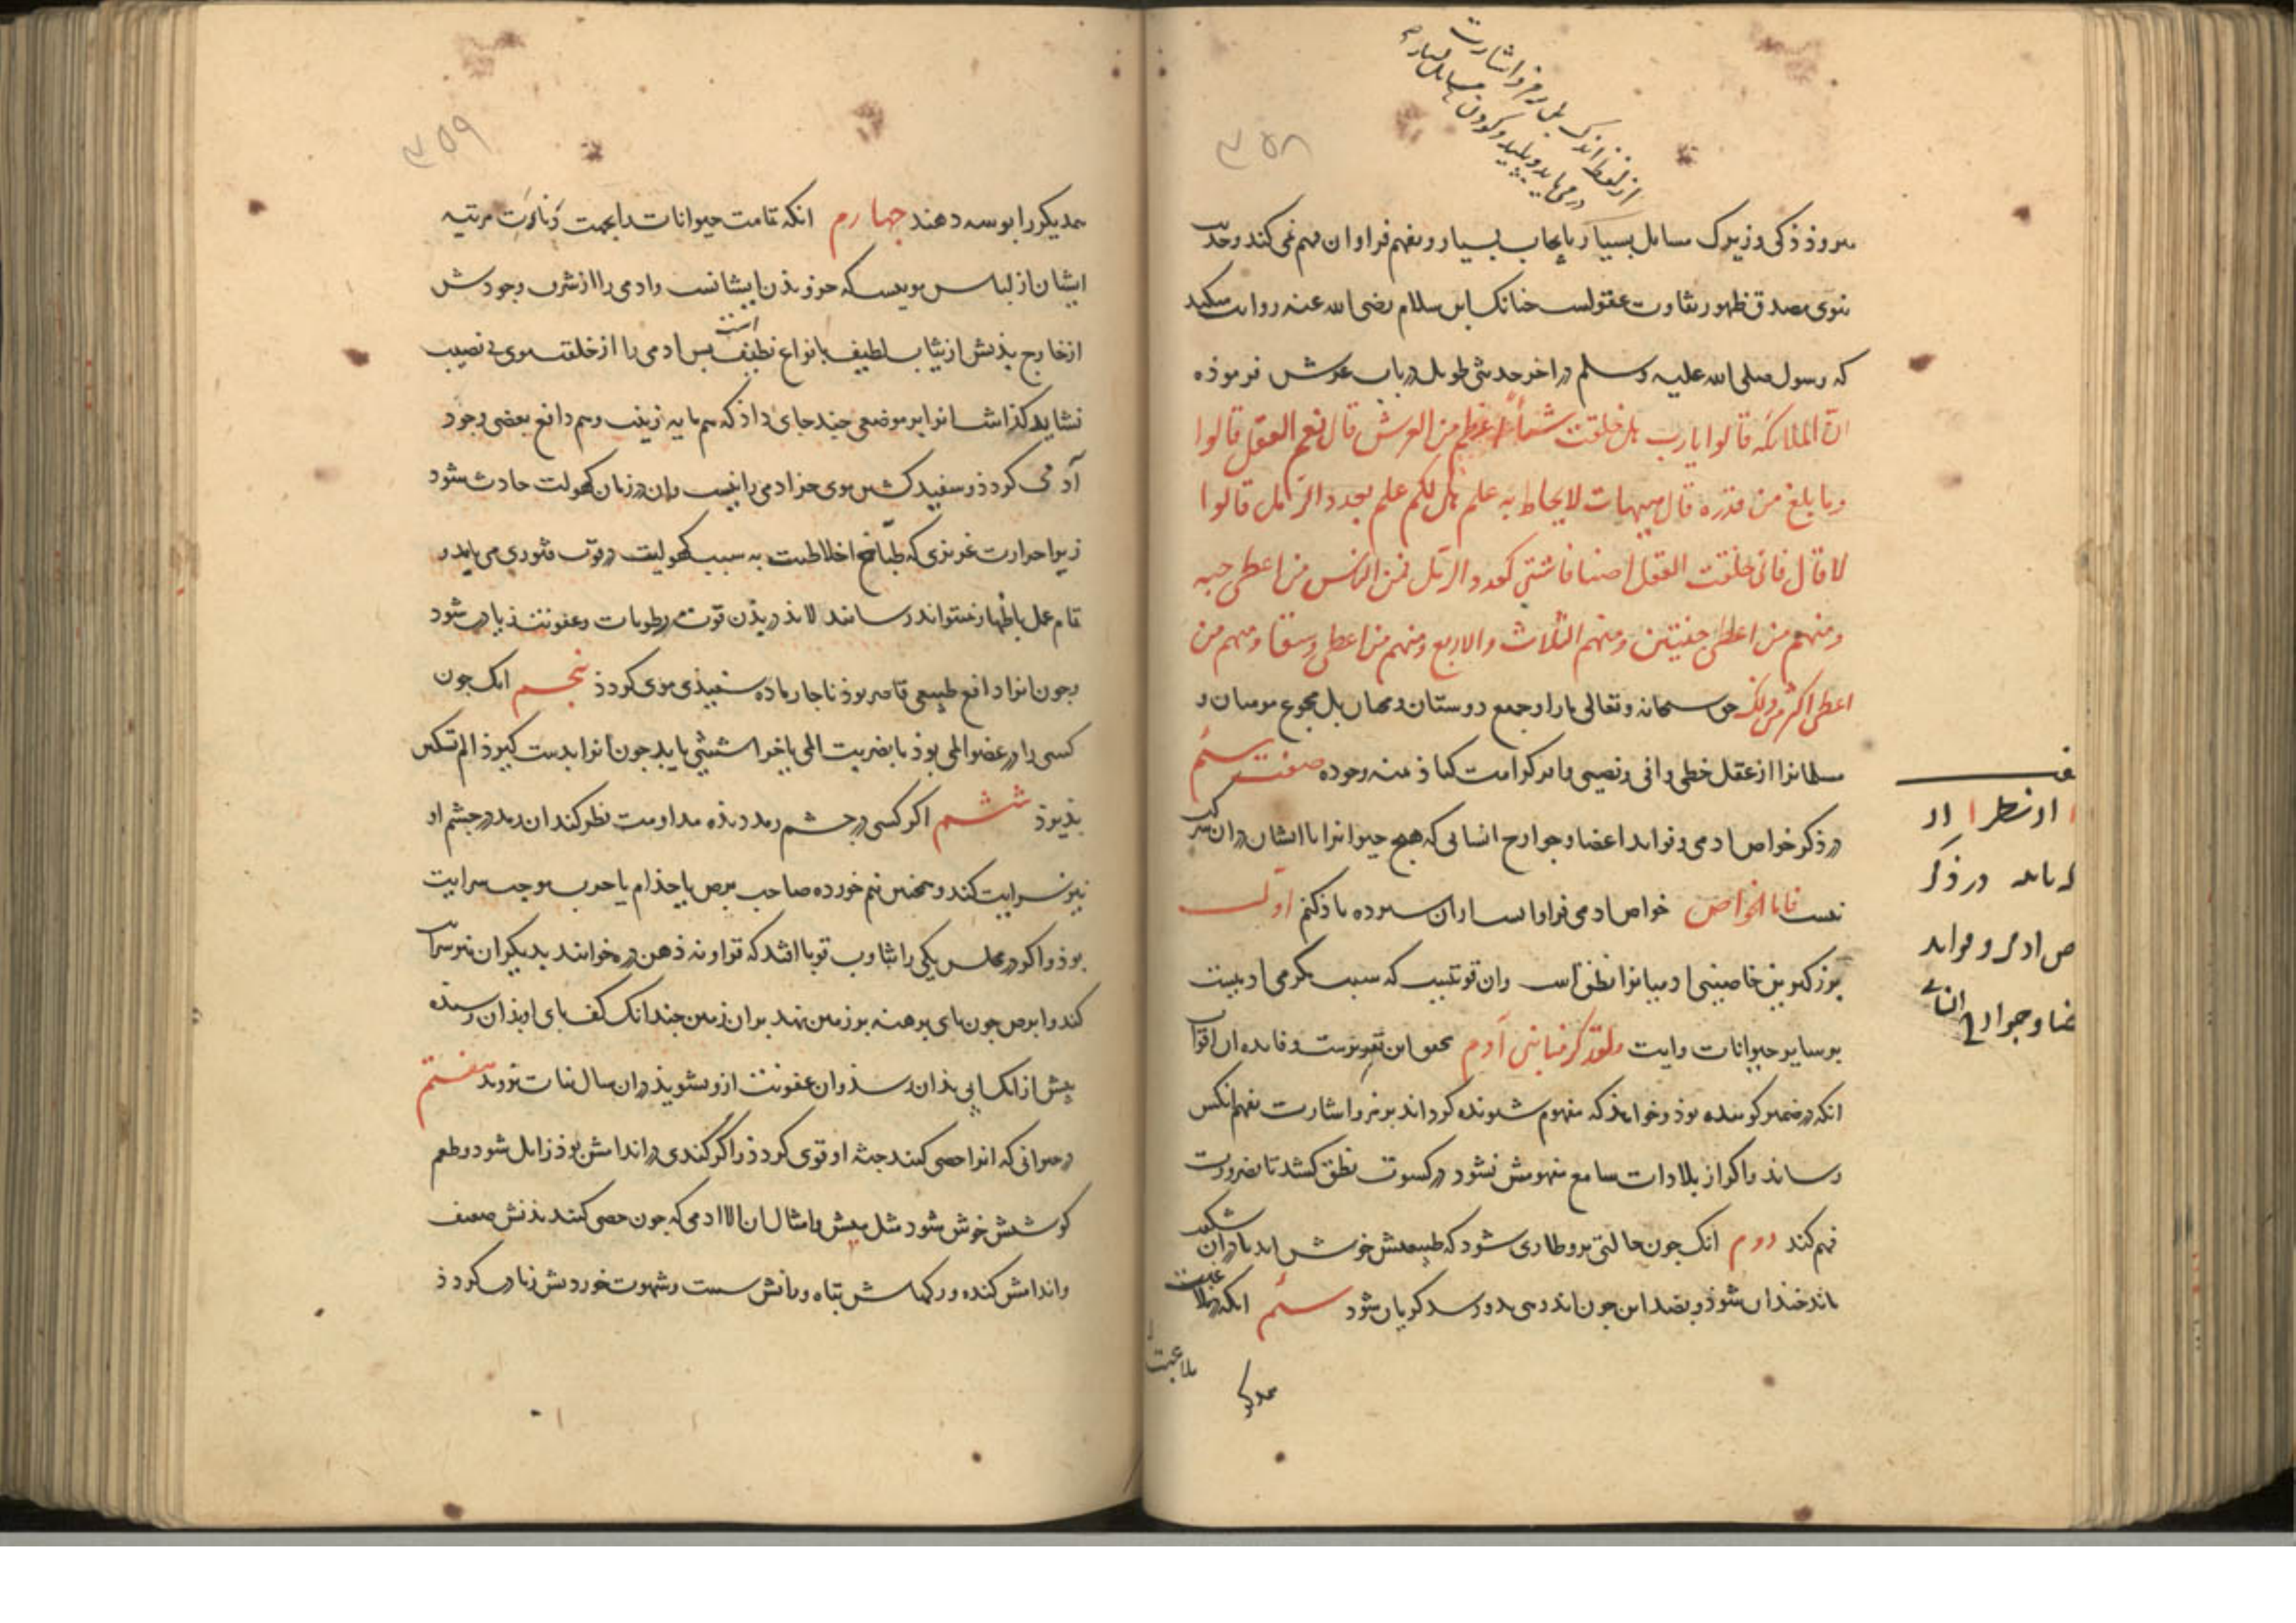 ۳۵۸
از لفظ اندک بل رمز و اشارت
در می یابد و بلید و کودن مسایل بسیار
ذکی و زیرک مسایل بسیار بایجاب بسیار و بفهم فراوان فهم می کند و حدیث
نبوی مصدق ظهور تفاوت عقولست چنانک ابن سلام رضی الله عنه روایت میکند
که رسول صلی الله علیه و سلم در اخر حدیثی طویل در باب عرش فرموذه
ان الملائکة قالوا یا رب هل خلقت شیئاً اعظم من العرش قال نعم العقل قالوا
و ما بلغ من قدره قال هیهات لا یحاط به علم هل لکم علم بعدد الرمل قالوا
لا قال فانی خلقت العقل اصنافا شتی کعدد الرمل فمن الناس من اعطی حبه
و منهم من اعطی حبتین و منهم الثلاث و الاربع و منهم من اعطی وسقا و منهم من
اعطی اکثر من ذلک حق سبحانه و تعالی ما را و جمیع دوستان و محبان بل مجموع مومنان و
مسلمانرا از عقل حظی وافی و نصیبی وافر کرامت کناذ بمنه وجوده صفت سئم
در ذکر خواص ادمی و فواید اعضا و جوارح انسانی که هیچ حیوانرا با ایشان در ان شرکت
نیست فاما الخواص خواص ادمی فراوانست از ان سیزده یاذ کنم اول
بزرکترین خاصیتی ادمیانرا نطق است و ان قوتیست که سبب مکرمی ادمیست
بر سایر حیوانات و ایت ولقد کرمنا بنی آدم
انکه در ضمیر کوینده بوذ و خواهذ که مفهوم شنونده کرداند برمز و اشارت بفهم انکس
رساند و اکر از بلادات سامع مفهومش نشود در کسوت نطق کشد تا بضرورت
فهم کند دوم انک جون حالتی برو طاری شود که طبیعتش خوش اید یا در ان شکفت
ماند خندان شوذ و بضد این جون اندوهی بدو رسد کریان شود سئم انکه در ملاعبت
ملاعبت
همدیکر
او نظر ا از
که یابد در ذکر
ص ادمی و فواید
ضا و جوارح انسانی
۳۵۹
همدیکر را بوسه دهند جهارم انکه قامت حیوانات را بجهت دناءت مرتبه
ایشان از لباس مویست که جزو بذن ایشانست و ادمی را از شرف وجودش
از خارج بذنش از ثیاب لطیف بانواع نظیف است بس ادمی را از خلقت موی بی نصیب
نشاید کذاشت انرا بر موضعی چند جای داذ که هم مایه زینت و هم دافع بعضی وجود
آدمی کردد و سفید شدن موی جز ادمی را نیست و ان در زمان کهولت حادث شود
زیرا حرارت غریزی که طباخ اخلاطست به سبب کهولیت در قوت فتوری می یابد و
تمام عمل باظهار نمیتواند رسانید لابد در بذن قوت رطوبات و عفونت زیادت شود
و جون انرا دافع طبیعی قاصر بوذ ناجار ماده سفیدی موی کردد پنجم انک جون
کسی را در عضو المی بوذ یا بضربت المی یا خراششی یابد جون انرا بدست کیرد الم تسکین
پذیرد ششم اکر کسی در چشم رمد دیده مداومت نظر کند ان رمد در چشم او
نیز سرایت کند و همجنین نیم خورده صاحب برص یا جذام یا جرب موجب سرایت
بوذ و اکر در مجلس یکی را تثاوب
کند و ابرص جون پای برهنه بر زمین نهد بران زمین جندانک کف پای او بذان رسیده
بیش از انک ابی بذان رسد و ان عفونت ازو بشوید در ان سال نبات نروید هفتم
هر حیوانی که انرا خصی کنند جثه او قوی کردد و اکر گندی در اندامش بوذ زایل شود و طعم
کوشتش خوش شود مثل میش و امثال ان الا ادمی که جون خصی کنند بذنش ضعیف
و اندامش کنده و رکهاش تباه و رایش سست و شهوت خوردنش زیادت کردد